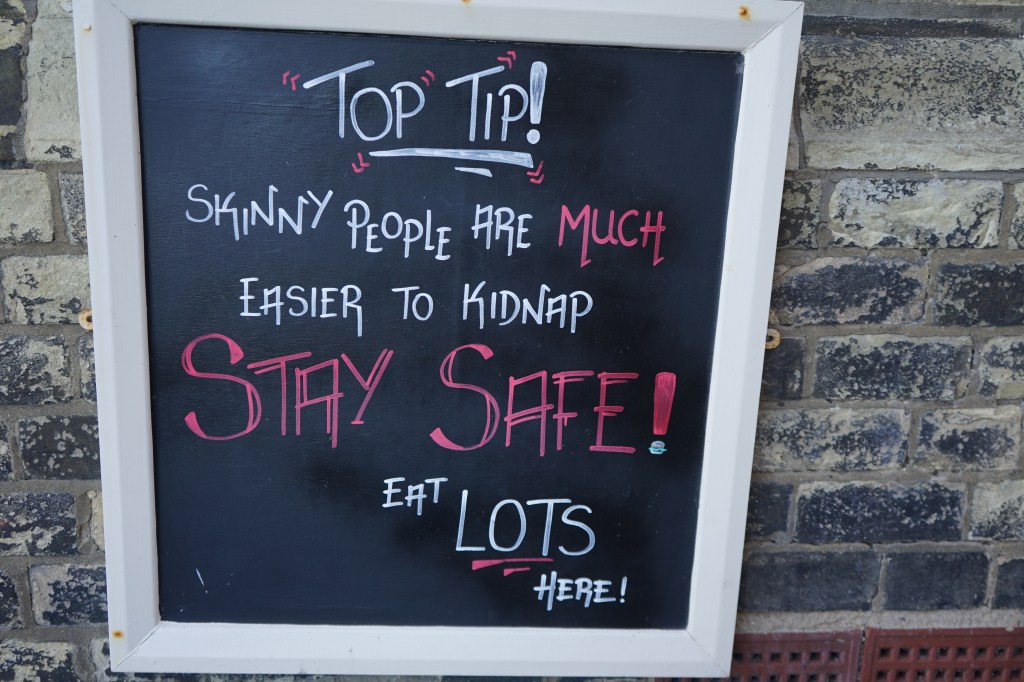 TOP TIP!
SKINNY PEOPLE ARE MUCH
EASIER TO KIDNAP
STAY SAFE!
EAT LOTS
HERE!